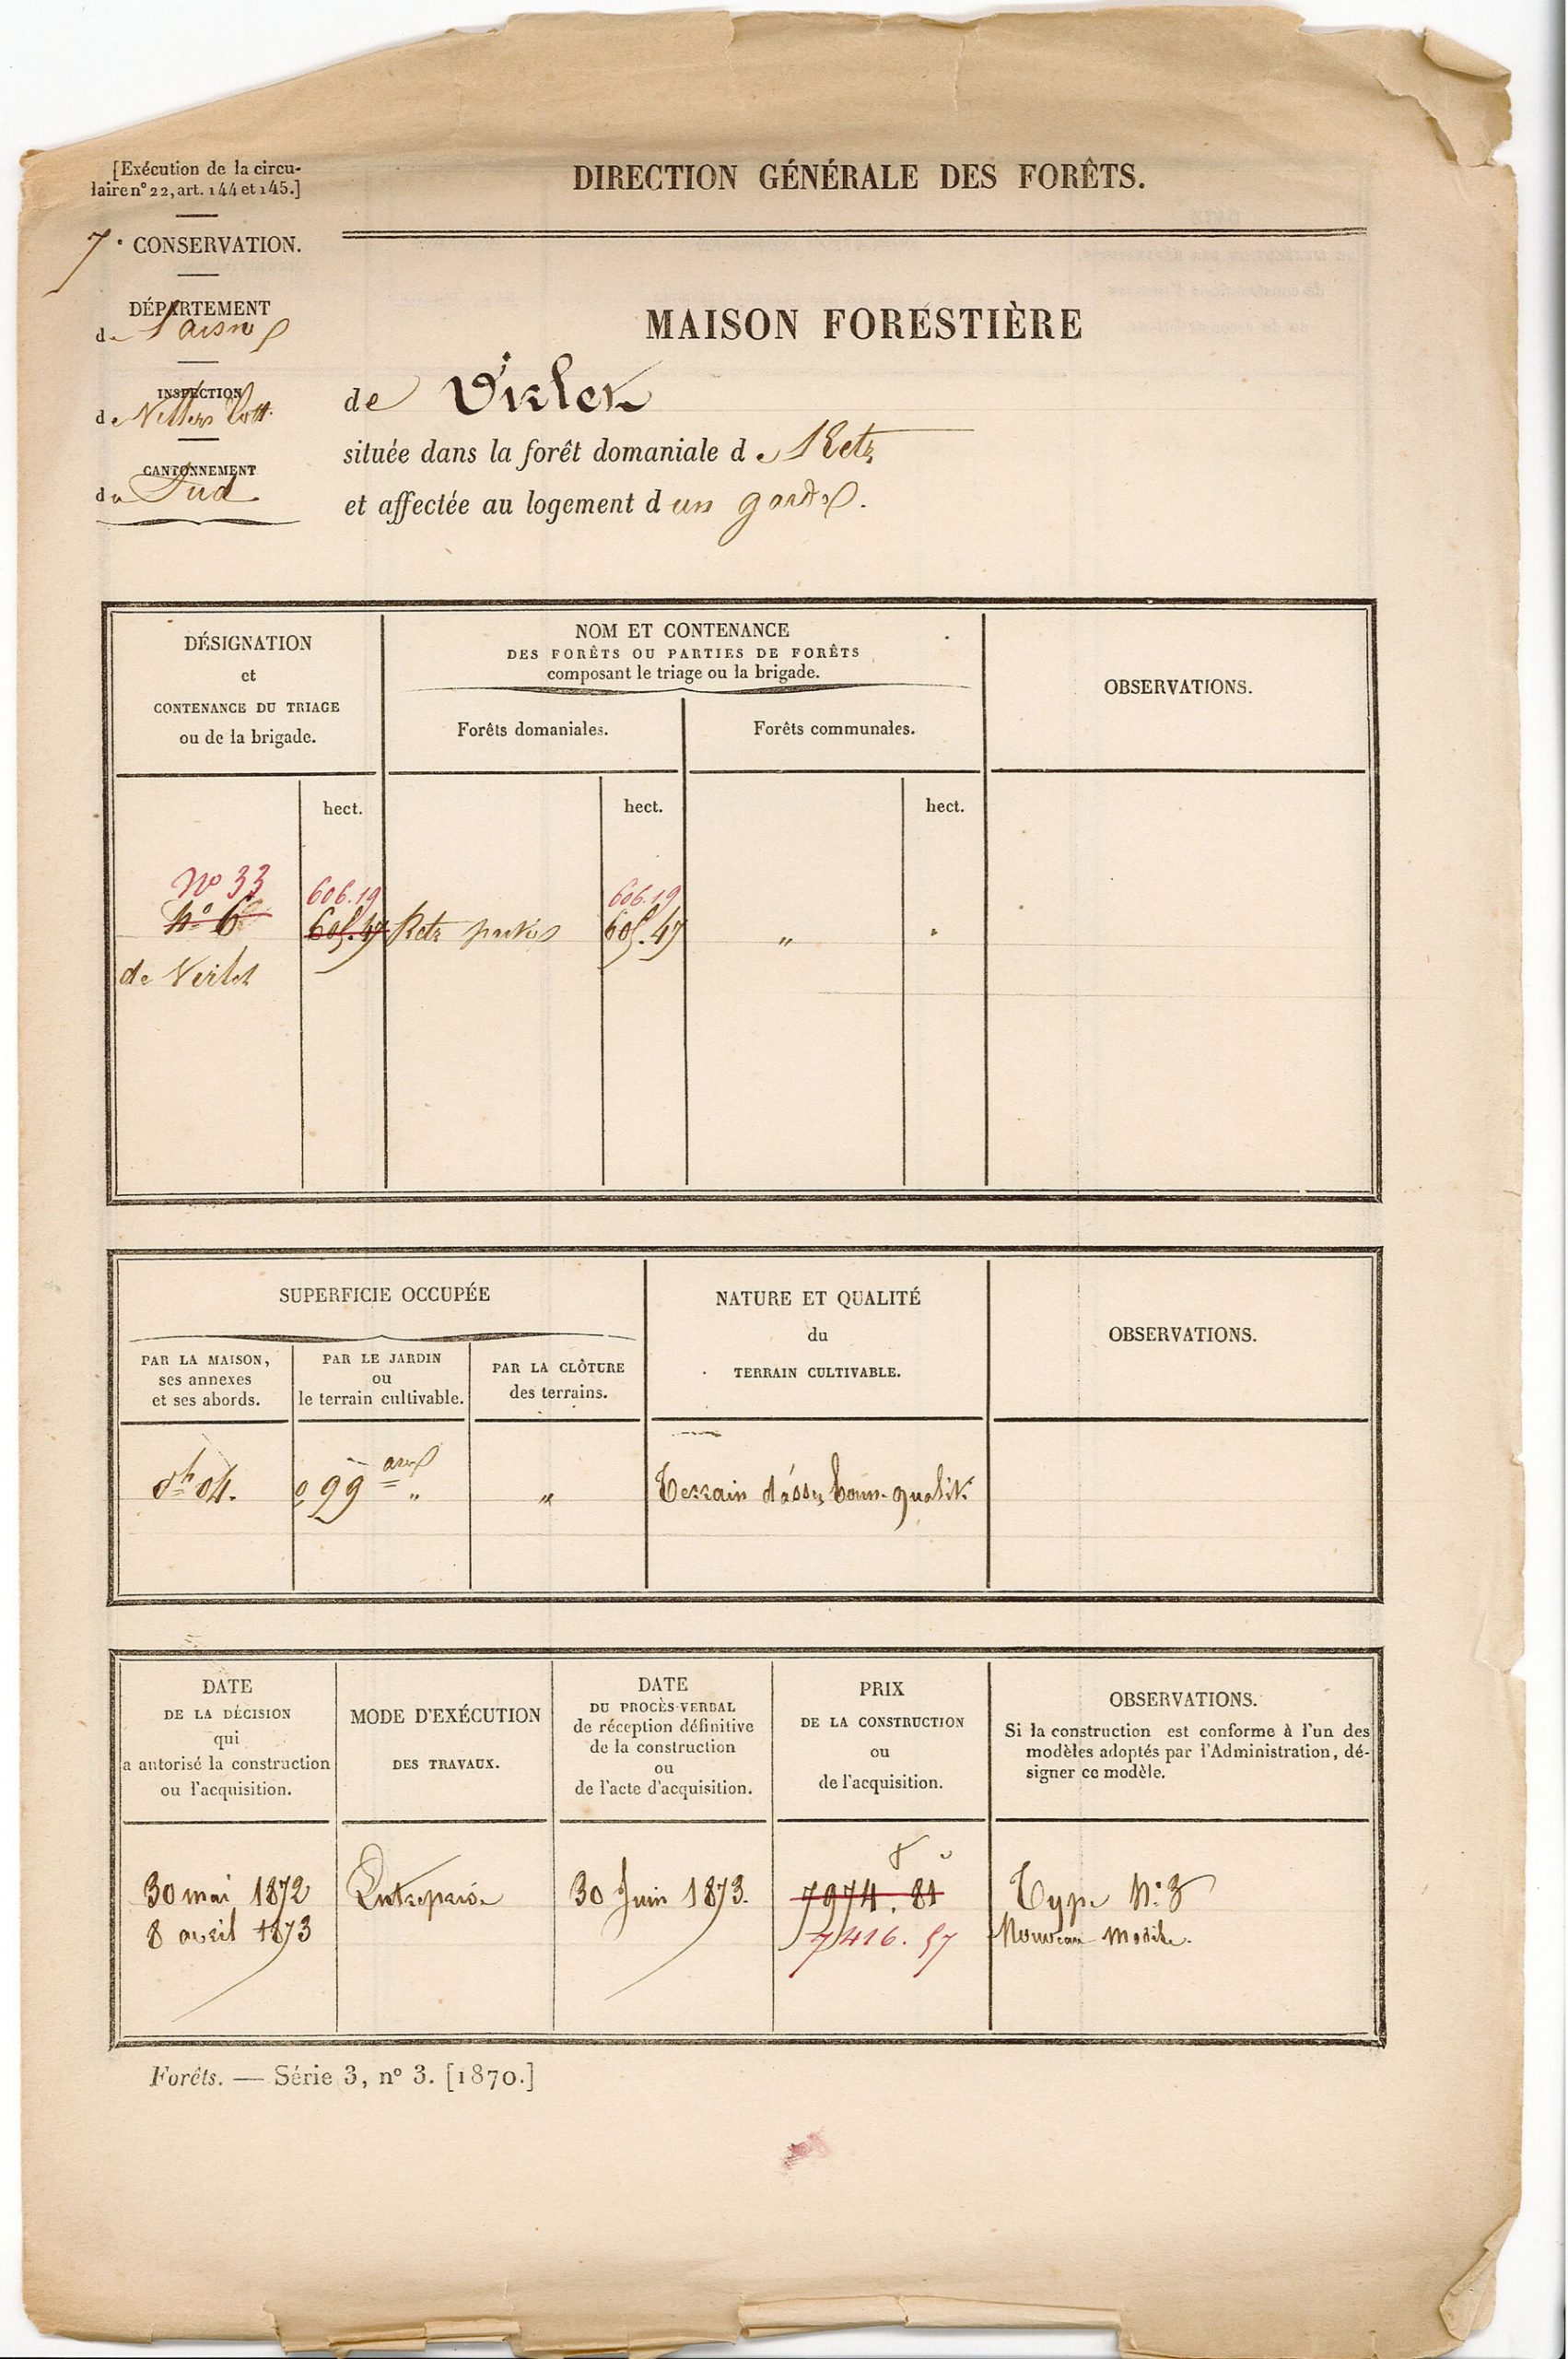 [Exécution de la circu-
laire n° 22, art. 144 et 145.]
7e CONSERVATION.
DÉPARTEMENT
de l'aisne
INSPECTION
de Villers Cott.
CANTONNEMENT
du Sud
DIRECTION GÉNÉRALE DES FORÊTS.
MAISON FORESTIÈRE
de Virlet
située dans la forêt domaniale de Retz
et affectée au logement d'un garde.
DÉSIGNATION
et
CONTENANCE DU TRIAGE
ou de la brigade.
NOM ET CONTENANCE
DES FORÊTS OU PARTIES DE FORÊTS
composant le triage ou la brigade.
Forêts domaniales.
Forêts communales.
OBSERVATIONS.
hect.
hect.
hect.
No 33
606.19
606.19
605.47
Retz parties
605.47
"
"
de Virlet
SUPERFICIE OCCUPÉE
PAR LA MAISON,
ses annexes
et ses abords.
PAR LE JARDIN
ou
le terrain cultivable.
PAR LA CLÔTURE
des terrains.
NATURE ET QUALITÉ
du
TERRAIN CULTIVABLE.
OBSERVATIONS.
0h 04.
0 99 ares "
"
Terrain d'assez bonne qualité
DATE
DE LA DÉCISION
qui
a autorisé la construction
ou l'acquisition.
MODE D'EXÉCUTION
DES TRAVAUX.
DATE
DU PROCÈS-VERBAL
de réception définitive
de la construction
ou
de l'acte d'acquisition.
PRIX
DE LA CONSTRUCTION
ou
de l'acquisition.
OBSERVATIONS.
Si la construction est conforme à l'un des
modèles adoptés par l'Administration, dé-
signer ce modèle.
30 mai 1872
8 avril 1873
Entreprise
30 Juin 1873.
7974. 81
7416. 57
Type N° 3
Nouveau modèle.
Forêts. — Série 3, n° 3. [1870.]